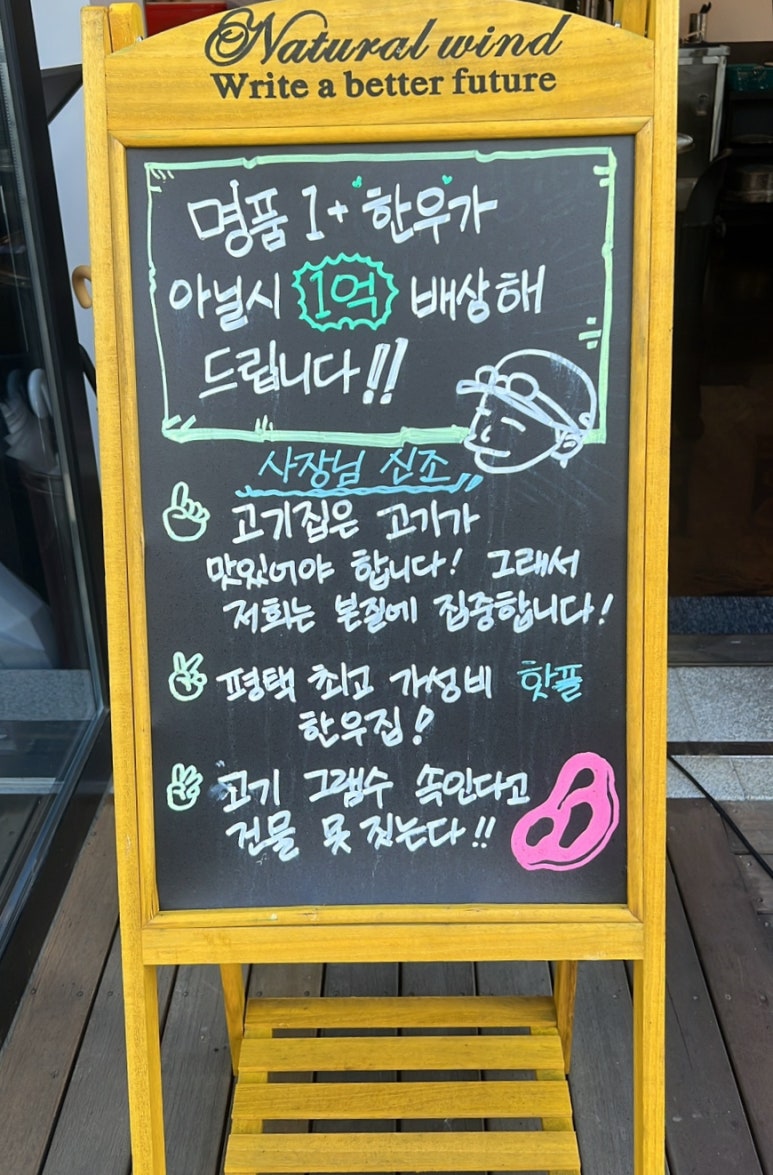 Natural wind
Write a better future
명품 1+ 한우가
아닐시 1억 배상해
드립니다!!
사장님 신조
고기집은 고기가
맛있어야 합니다! 그래서
저희는 본질에 집중합니다!
평택 최고 가성비 핫플
한우집!
고기 그램수 속인다고
건물 못 짓는다!!